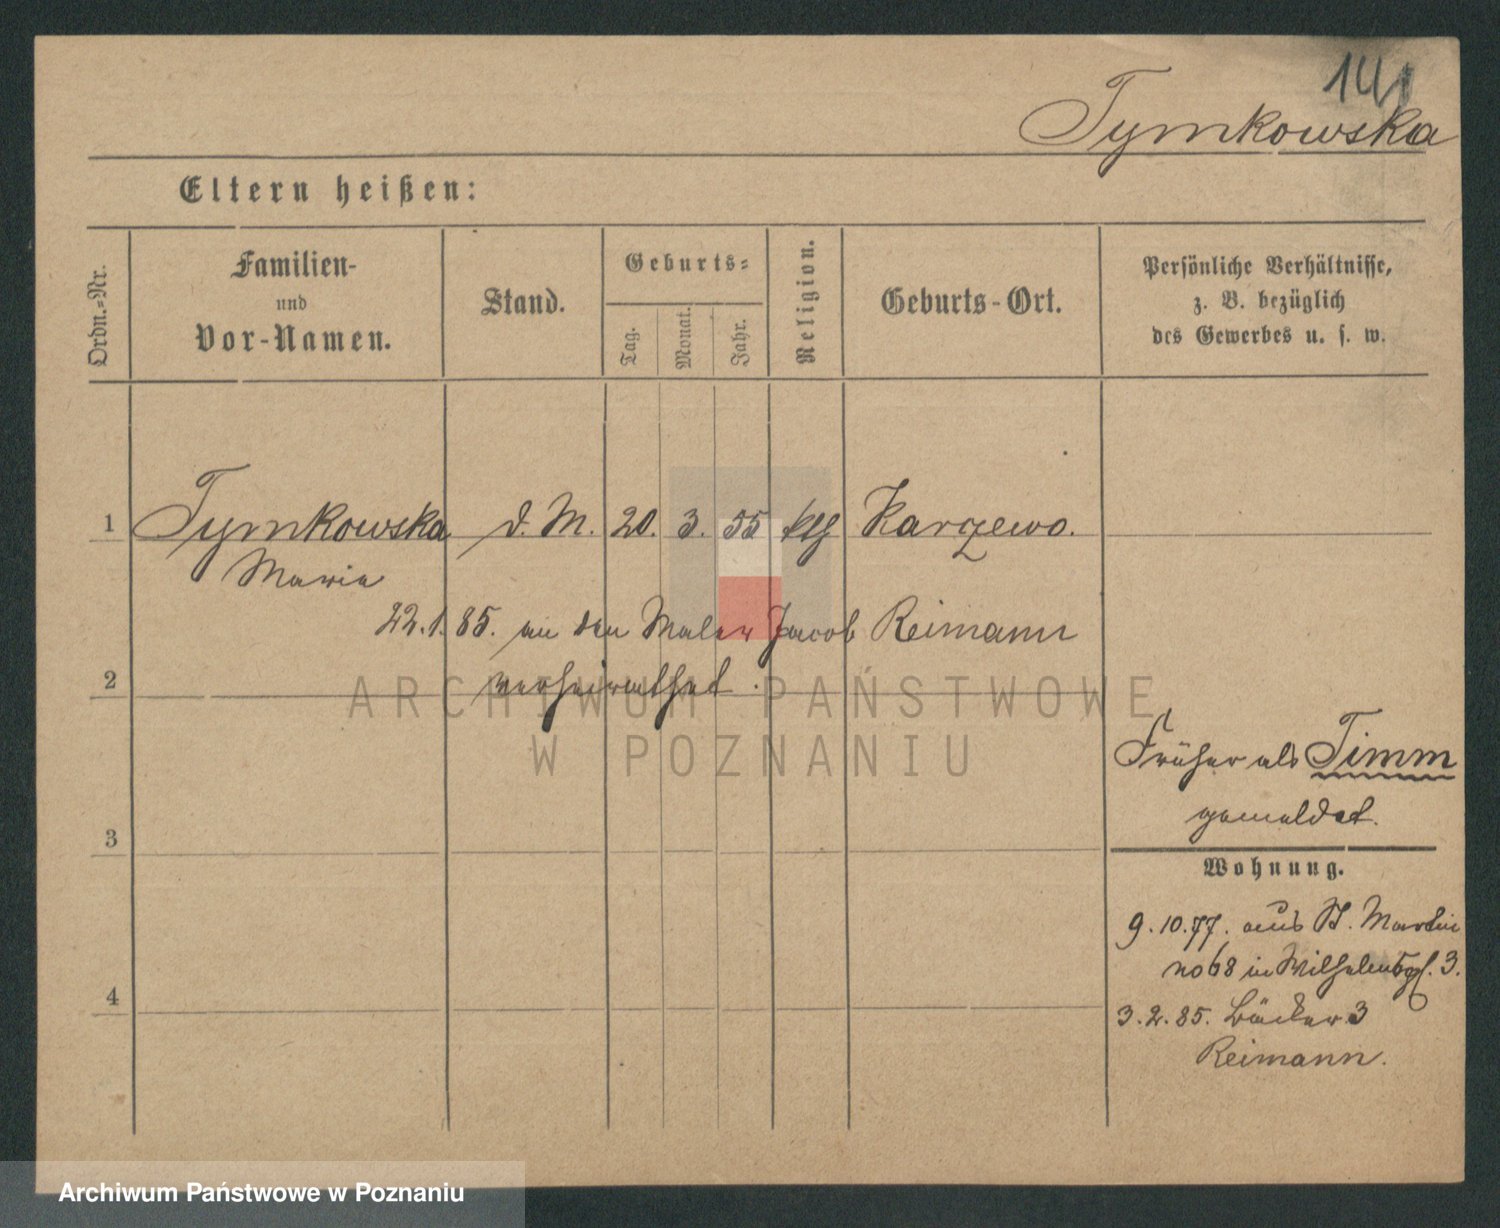 141
Tymkowska
Eltern heißen:
Ordn.-Nr.
Familien-
und
Vor-Namen.
Stand.
Geburts-
Tag.
Monat.
Jahr.
Religion.
Geburts-Ort.
Persönliche Verhältnisse,
z. B. bezüglich
des Gewerbes u. s. w.
1 Tymkowska d. M. 20. 3. 55 Karzewo.
Maria
22.1.85. an den Maler Jacob Reimann
2 verheirathet.
ARCHIWUM PAŃSTWOWE
W POZNANIU
Früher als Timm
gemeldet.
3
Wohnung.
9.10.77. aus St. Martin
no 68 in Wilhelmspl. 3.
4
3.2.85. Bäcker 3
Reimann.
Archiwum Państwowe w Poznaniu